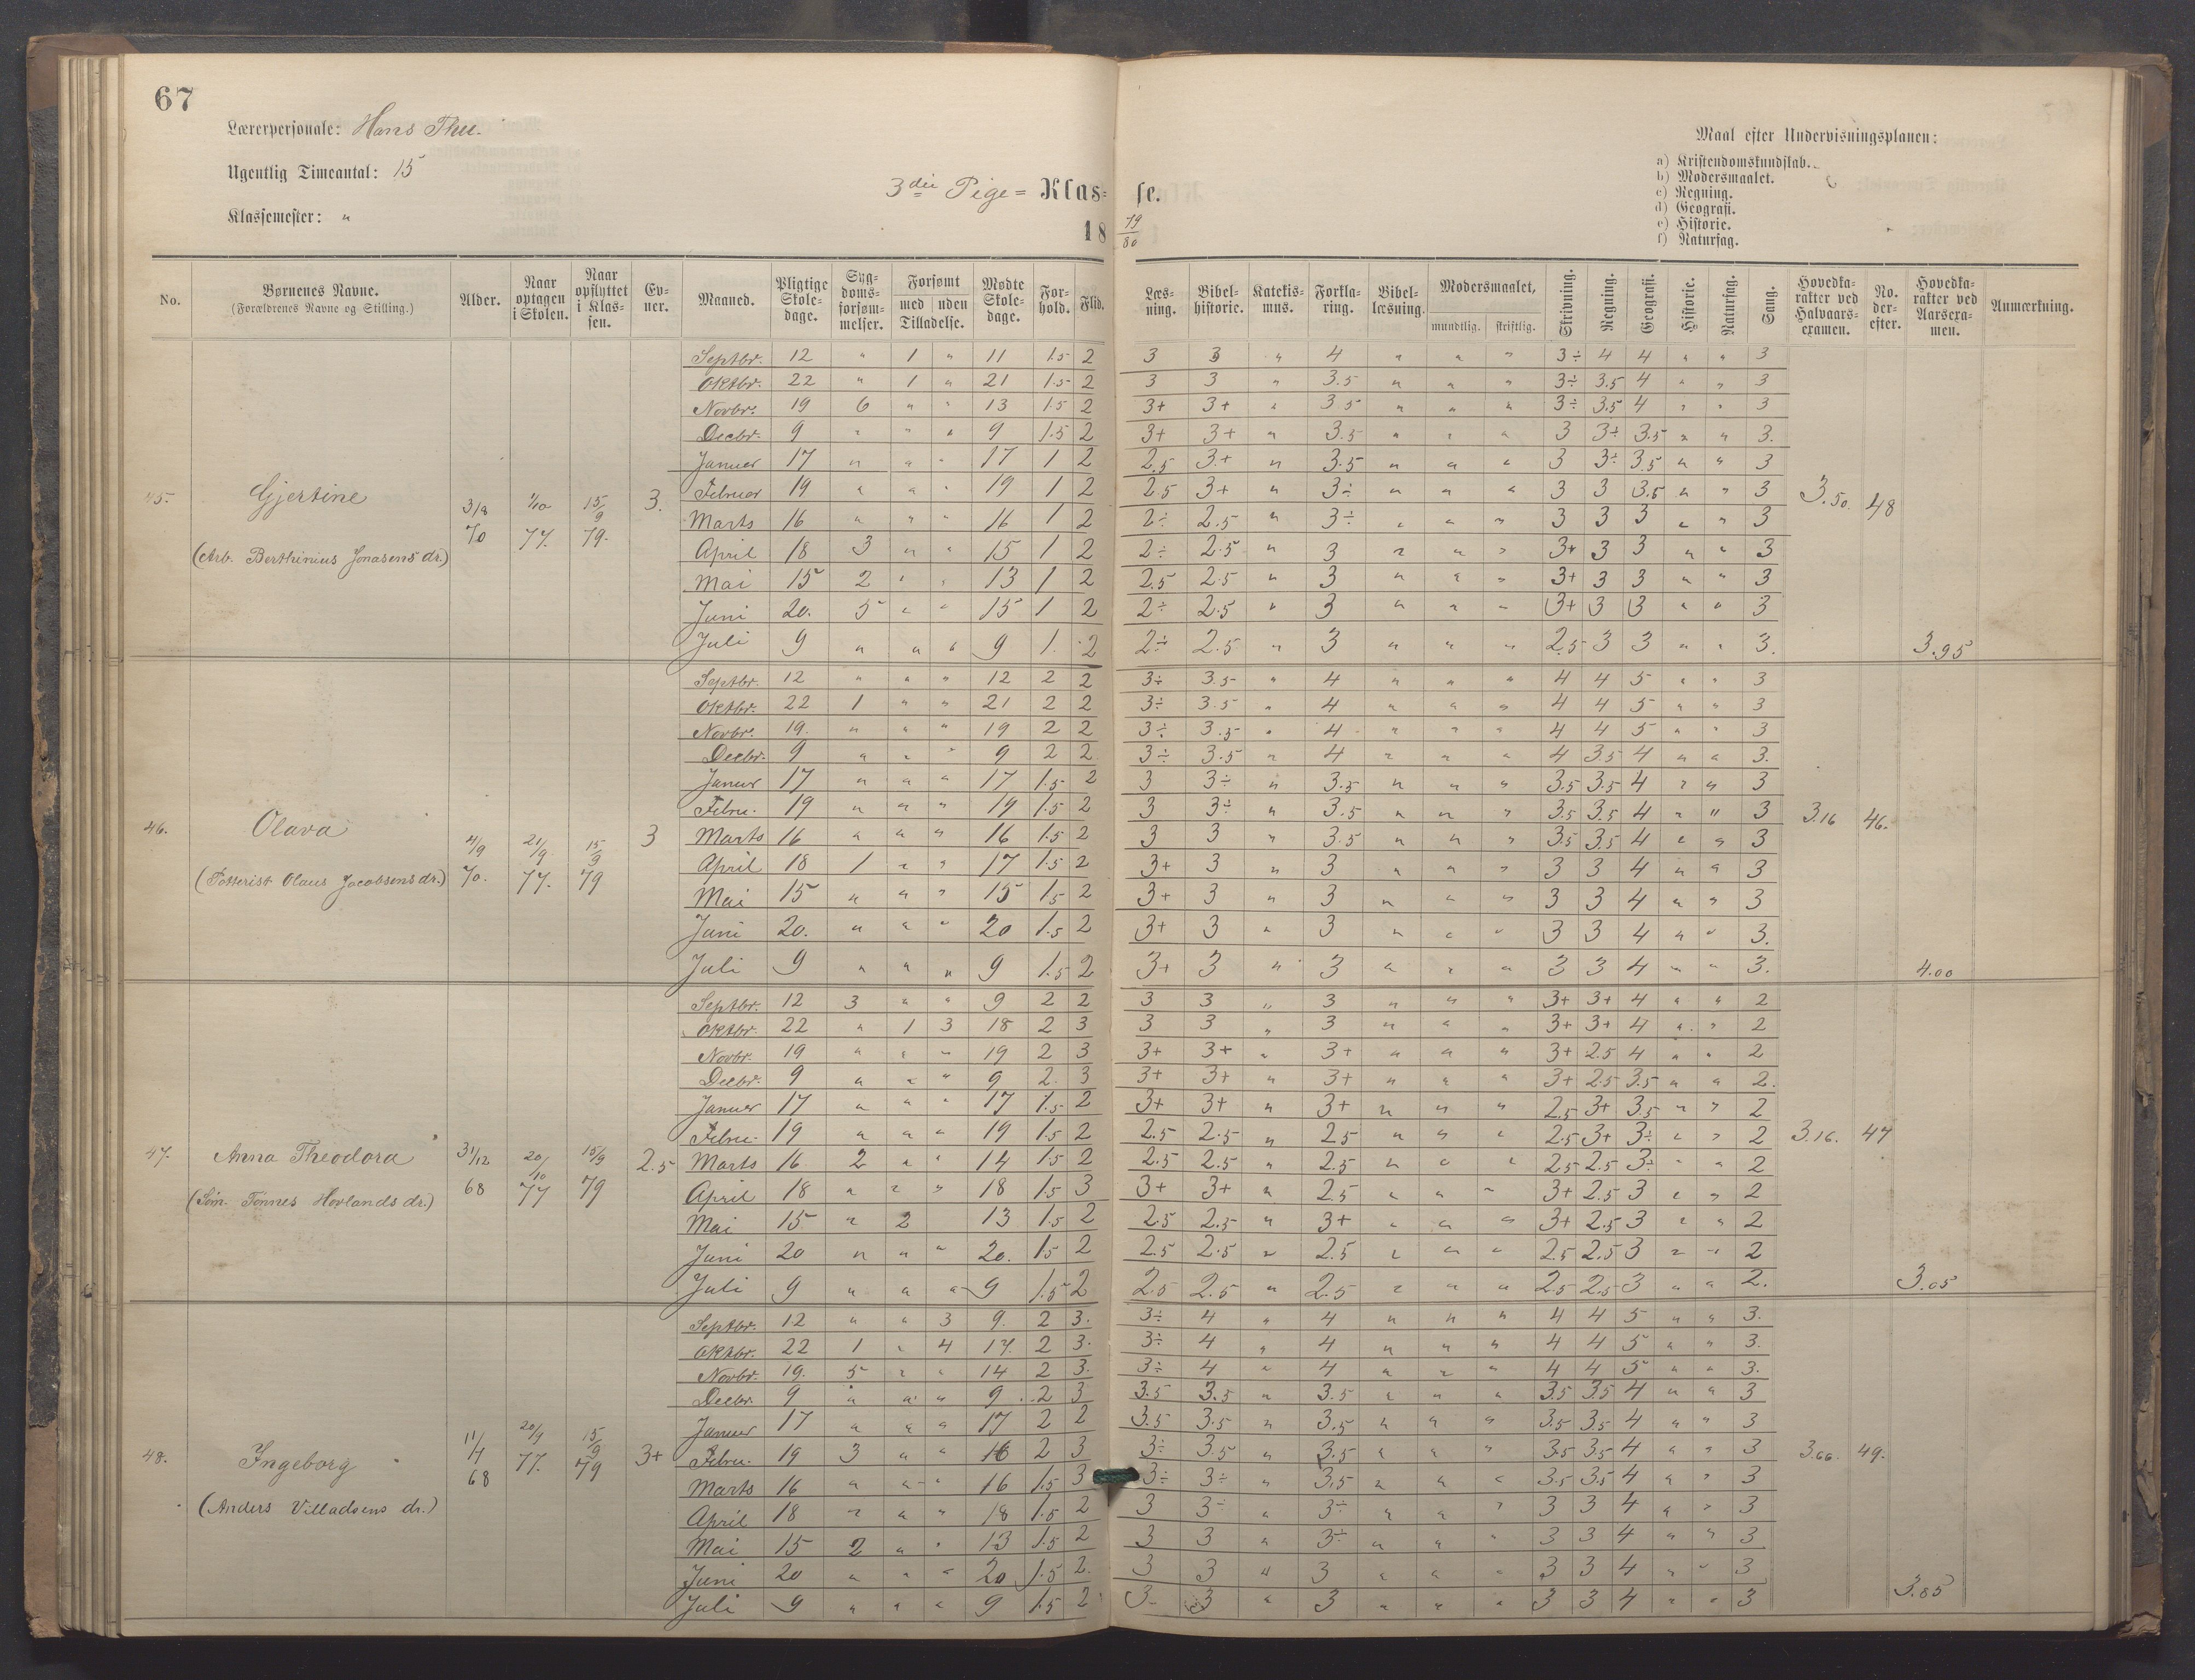 67
Lærerpersonale: Hans Thu.
Ugentlig Timeantal: 15
Klassemester: "
3die Pige= Klas= se.
18 79/80
Maal efter Undervisningsplanen:
a) Kristendomskundskab.
b) Modersmaalet.
c) Regning.
d) Geografi.
e) Historie.
f) Naturfag.
No. Børnenes Navne. (Forældrenes Navne og Stilling.) Alder. Naar optagen i Skolen. Naar opflyttet i Klassen. Evner. Maaned. Pligtige Skoledage. Sygdomsforsømmelser. Forsømt med uden Tilladelse. Mødte Skoledage. Forhold. Flid. Læsning. Bibelhistorie. Katekismus. Forklaring. Bibellæsning. Modersmaalet, mundtlig. skriftlig. Skrivning. Regning. Geografi. Historie. Naturfag. Sang. Hovedkarakter ved Halvaarsexamen. No. derefter. Hovedkarakter ved Aarsexamen. Anmærkning.
45. Gjertine
(Arb. Berthinius Jonasens dr.)
3/8 70 1/10 77. 15/9 79. 3.
Septbr. 12 " 1 " 11 1.5 2 3 3 " 4 " " " 3÷ 4 4 " " 3
Oktbr. 22 " 1 " 21 1.5 2 3 3 " 3.5 " " " 3÷ 3.5 4 " " 3
Novbr. 19 6 " " 13 1.5 2 3+ 3+ " 3.5 " " " 3÷ 3.5 4 " " 3
Decbr. 9 " " " 9 1.5 2 3+ 3+ " 3.5 " " " 3 3÷ 3.5 " " 3.
Januar 17 " " " 17 1 2 2.5 3.+ " 3.5 " " " 3 3÷ 3.5 " " 3
Februar 19 " " " 19 1 2 2.5 3+ " 3÷ " " " 3 3 3.5 " " 3
Marts 16 " " " 16 1 2 2÷ 2.5 " 3÷ " " " 3 3 3 " " 3
April 18 3 " " 15 1 2 2÷ 2.5 " 3 " " " 3+ 3 3 " " 3
Mai 15 2 " " 13 1 2 2.5 2.5 " 3 " " " 3+ 3 3 " " 3
Juni 20. 5 " " 15 1 2 2÷ 2.5 " 3 " " " 3+ 3 3 " " 3
Juli 9 " " " 9 1. 2 2÷ 2.5 " 3 " " " 2.5 3 3 " " 3.
3.50. 48 3.95
46. Olava
(Fotterist Olaus Jacobsens dr.)
4/9 70. 21/9 77. 15/9 79 3
Septbr. 12 " " " 12 2 2 3÷ 3.5 " 4 " " " 4 4 5 " " 3
Oktbr. 22 1 " " 21 2 2 3÷ 3.5 " 4 " " " 4 4 5 " " 3
Novbr. 19. " " " 19 2 2 3÷ 3.5 " 4 " " " 4 4 5 " " 3
Decbr. 9 " " " 9 2 2 3÷ 3.5 " 4 " " " 4 3.5 4 " " 3.
Januar 17 " " " 17 1.5 2 3 3÷ " 3.5 " " " 3.5 3.5 4 " " 3
Febru. 19 " " " 19 1.5 2 3 3÷ " 3.5 " " " 3.5 3.5 4 " " 3
Marts 16 " " " 16 1.5 2 3 3 " 3.5 " " " 3.5 3.5 4 " " 3
April 18 1 " " 17 1.5 2 3+ 3 " 3 " " " 3 3 4 " " 3
Mai 15 " " " 15 1.5 2 3+ 3 " 3 " " " 3 3 4 " " 3
Juni 20. " " " 20 1.5 2 3+ 3 " 3 " " " 3 3 4 " " 3.
Juli 9 " " " 9 1.5 2 3+ 3 " 3 " " " 3 3 4 " " 3.
3.16 46. 4.00
47. Anna Theodora
(Søm. Tønnes Hovlands dr.)
31/12 68 20/10 77 15/9 79 2.5
Septbr. 12 3 " " 9 2 2 3 3 " 3 " " " 3+ 3+ 4 " " 2
Oktbr. 22 " 1 3 18 2 3 3 3 " 3 " " " 3+ 3+ 4 " " 2
Novbr. 19 " " " 19 2 3 3+ 3+ " 3+ " " " 3+ 2.5 4 " " 2
Decbr. 9 " " " 9 2. 3 3+ 3+ " 3+ " " " 3+ 2.5 3.5 " " 2.
Januar 17 " " " 17 1.5 2 3+ 3+ " 3+ " " " 2.5 3+ 3.5 " " 2
Febru. 19 " " " 19 1.5 2 2.5 2.5 " 2.5 " " " 2.5 3+ 3÷ " " 2
Marts 16 2 " " 14 1.5 2 2.5 2.5 " 2.5 " " " 2.5 2.5 3÷ " " 2
April 18 " " " 18 1.5 3 3+ 3+ " 2.5 " " " 3+ 2.5 3 " " 2
Mai 15 " 2 13 1.5 2 2.5 2.5 " 3+ " " " 3+ 2.5 3 " " 2
Juni 20 " " " 20. 1.5 2 2.5 2.5 " 2.5 " " " 2.5 2.5 3 " " 2
Juli 9 " " " 9 1.5 2 2.5 2.5 " 2.5 " " " 2.5 2.5 3 " " 2.
3.16. 47 3.05
48. Ingeborg
(Anders Villadsens dr.)
11/4 68 20/9 77. 15/9 79 3+
Septbr. 12 " " 3 9. 2 3. 3÷ 4 " 4 " " " 4 4 5 " " 3.
Oktbr. 22 1 " 4 17. 2 3. 3÷ 4 " 4 " " " 4 4 5 " " 3.
Novbr. 19. 5 " " 14 2 3. 3÷ 4 " 4 " " " 4 4 5 " " 3.
Decbr. 9 " " " 9 2 3 3.5 3.5 " 3.5 " " " 3.5 3.5 4 " " 3
Januar 17 " " " 17 2 2 3.5 3.5 " 3.5 " " " 3.5 3.5 4 " " 3
Febru. 19 3 " " 16 2 3 3÷ 3.5 " 3.5 " " " 3.5 3.5 4 " " 3
Marts 16 " " " 16 1.5 3 3÷ 3÷ " 3.5 " " " 3.5 3.5 4 " " 3
April 18 " " " 18 1.5 2 3 3÷ " 3÷ " " " 3 3 4 " " 3
Mai 15 2 " " 13 1.5 2 3 3 " 3÷ " " " 3 3 4 " " 3
Juni 20 " " " 20 1.5 2. 3 3 " 3 " " " 3 3 4 " " 3
Juli 9 " " " 9 1.5 2 3 3 " 3 " " " 3 3 4 " " 3
3.66. 49. 3.85